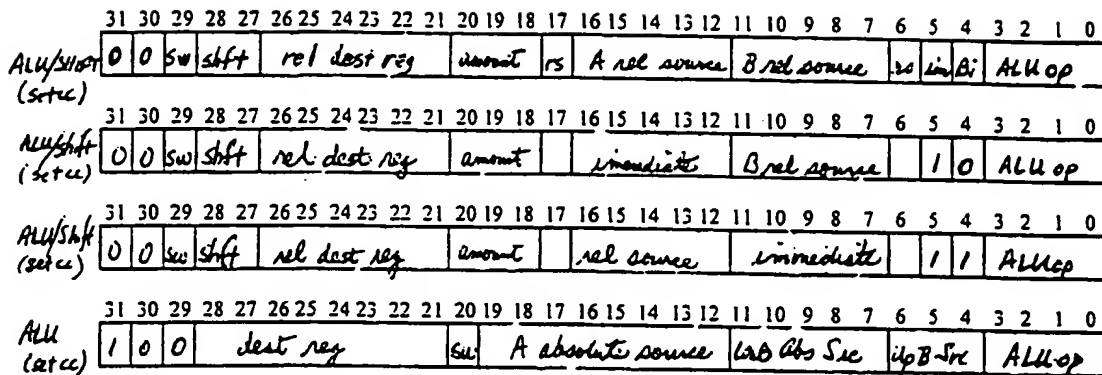 31 30 29 28 27 26 25 24 23 22 21 20 19 18 17 16 15 14 13 12 11 10 9 8 7 6 5 4 3 2 1 0
ALU/Shift (setcc) 0 0 sw shft rel dest reg amount rs A rel source B rel source im Bi ALU op
31 30 29 28 27 26 25 24 23 22 21 20 19 18 17 16 15 14 13 12 11 10 9 8 7 6 5 4 3 2 1 0
ALU/Shift (setcc) 0 0 sw shft rel dest reg amount immediate B rel source 1 0 ALU op
31 30 29 28 27 26 25 24 23 22 21 20 19 18 17 16 15 14 13 12 11 10 9 8 7 6 5 4 3 2 1 0
ALU/Shft (setcc) 0 0 sw shft rel dest reg amount rel source immediate 1 1 ALU op
31 30 29 28 27 26 25 24 23 22 21 20 19 18 17 16 15 14 13 12 11 10 9 8 7 6 5 4 3 2 1 0
ALU (setcc) 1 0 0 dest reg sw A absolute source B Abs Src B Src ALU op